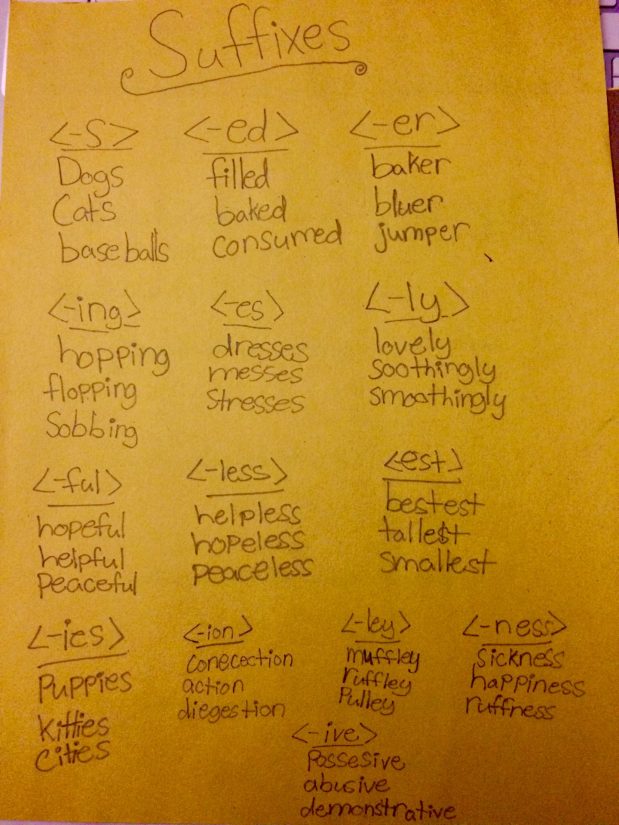 Suffixes
<-s>
Dogs
Cats
baseballs
<-ed>
filled
baked
consumed
<-er>
baker
bluer
jumper
<-ing>
hopping
flopping
Sobbing
<-es>
dresses
messes
Stresses
<-ly>
lovely
soothingly
smoothingly
<-ful>
hopeful
helpful
Peaceful
<-less>
helpless
hopeless
peaceless
<-est>
bestest
tallest
smallest
<-ies>
Puppies
kitties
cities
<-ion>
conecection
action
diegestion
<-ley>
muffley
ruffley
Pulley
<-ness>
sickness
happiness
ruffness
<-ive>
Possesive
abusive
demonstrative